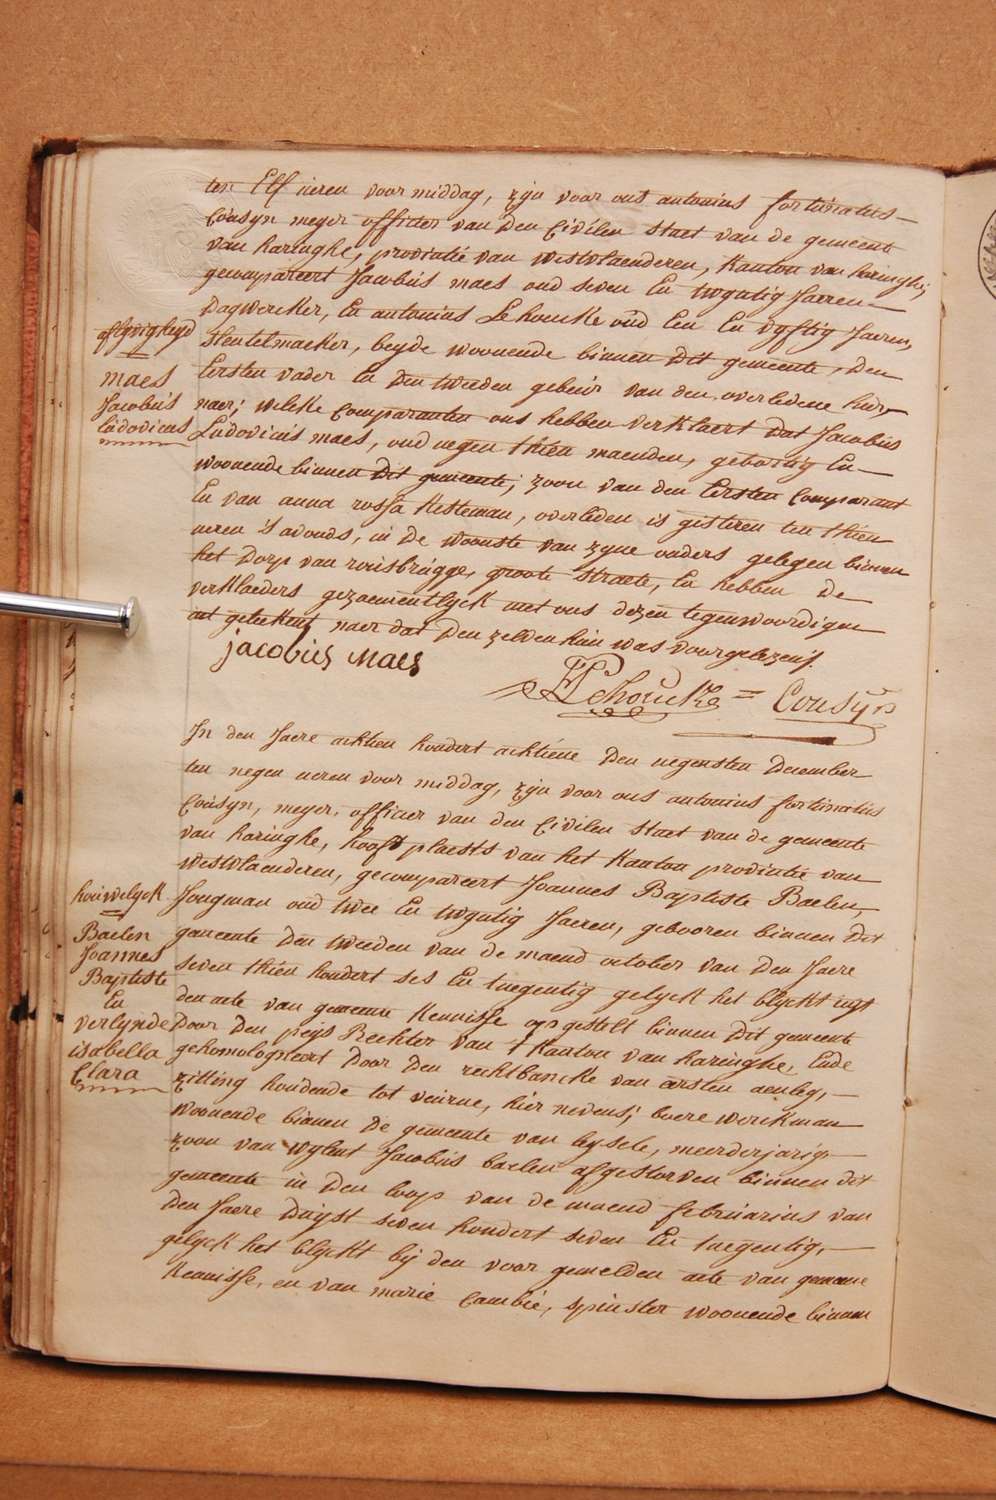 ten Elf ueren voor middag, zijn voor ons antonius fortunatus
Cousyn meyer officier van den Civilen staet van de gemeente
van haringhe, provintie van westvlaenderen, Kanton van haringhe;
gecompareert Jacobus maes oud seven En twyntig Jaeren
Dagwercker, En antonius Lehoucke oud Een En vyftig Jaeren,
sleutelmaeker, beyde woonende binnen dit gemeente, den
Eersten vader En den tweeden gebeur van den overledene hier
naer; welcke Comparanten ons hebben verklaert dat Jacobus
Ludovicus maes, oud negen thien maenden, geboortig En
woonende binnen dit gemeente, zoon van den Eersten Comparant
En van anna rossa Kesteman, overleden is gisteren ten thien
ueren 's avonds, in de wooniste van zyne ouders gelegen binnen
het dorp van rousbrugge, groote straete, En hebben de
verklaeders gezaementlyck met ons dezen tegenwoordigen
act geteekent naer dat den zelden hun was voorgelezen.
jacobus maes
Lehoucke = Cousyn
afgevigheyd
maes
Jacobus
Ludovicus
In den Jaere achtien hondert achtiene den negensten December
ten negen ueren voor middag, zijn voor ons antonius fortunatus
Cousyn, meyer, officier van den Civilen staet van de gemeente
van haringhe, hooft plaests van het Kanton provintie van
westvlaenderen, gecompareert Joannes Baptiste Baelen,
Jongman oud twee En twyntig Jaeren, gebooren binnen dit
gemeente den tweeden van de maend october van den Jaere
seven thien hondert ses En tnegentig gelyck het blyckt uyt
den acte van gemeene Kennisse opgestelt binnen dit gemeente
door den peys Rechter van 't Kanton van haringhe, Ende
gehomologueert door den rechtbancke van Eersten aenleg,
zitting houdende tot veurne, hier nevens; boere werckman
woonende binnen de gemeente van leysele, meerderjarig
zoon van wylent Jacobus baelen afgestorven binnen dit
gemeente in den loop van de maend februarius van
den Jaere duyst seven hondert seven En tnegentig,
gelyck het blyckt bij den voor gemelden acte van gemeene
Kennisse, en van marie Cambie, spinster woonende binnen
houwelyck
Baelen
Joannes
Baptiste
En
verlynde
isabella
Clara